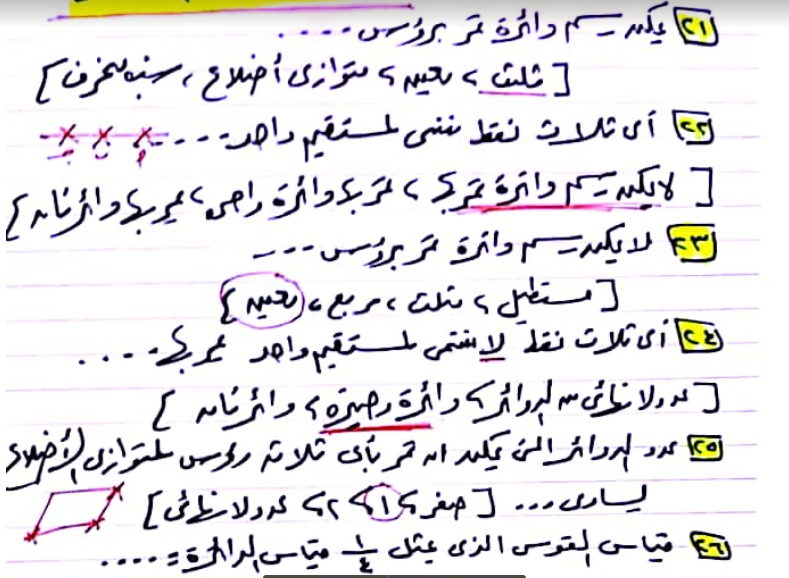 ٢١ يمكن رسم دائرة تمر برؤوس ....
[ مثلث ، معين ، متوازى أضلاع ، شبه منحرف ]
٢٢ أى ثلاث نقط تنتمى لمستقيم واحد ....
[ لايمكن رسم دائرة تمر بها ، تمر بها دائرة واحدة ، يمر بها دائرتان ]
٢٣ لا يمكن رسم دائرة تمر برؤوس ....
[ مستطيل ، مثلث ، مربع ، معين ]
٢٤ أى ثلاث نقط لا تنتمى لمستقيم واحد يمر بها ....
[ عدد لا نهائى من الدوائر ، دائرة وحيدة ، دائرتان ]
٢٥ عدد الدوائر التى يمكن ان تمر بأى ثلاثة رؤوس لمتوازى الأضلاع
يساوى ... [ صفر ، ١ ، ٢ ، عدد لا نهائى ]
٢٦ قياس القوس الذى يمثل ١/٤ قياس الدائرة = ....